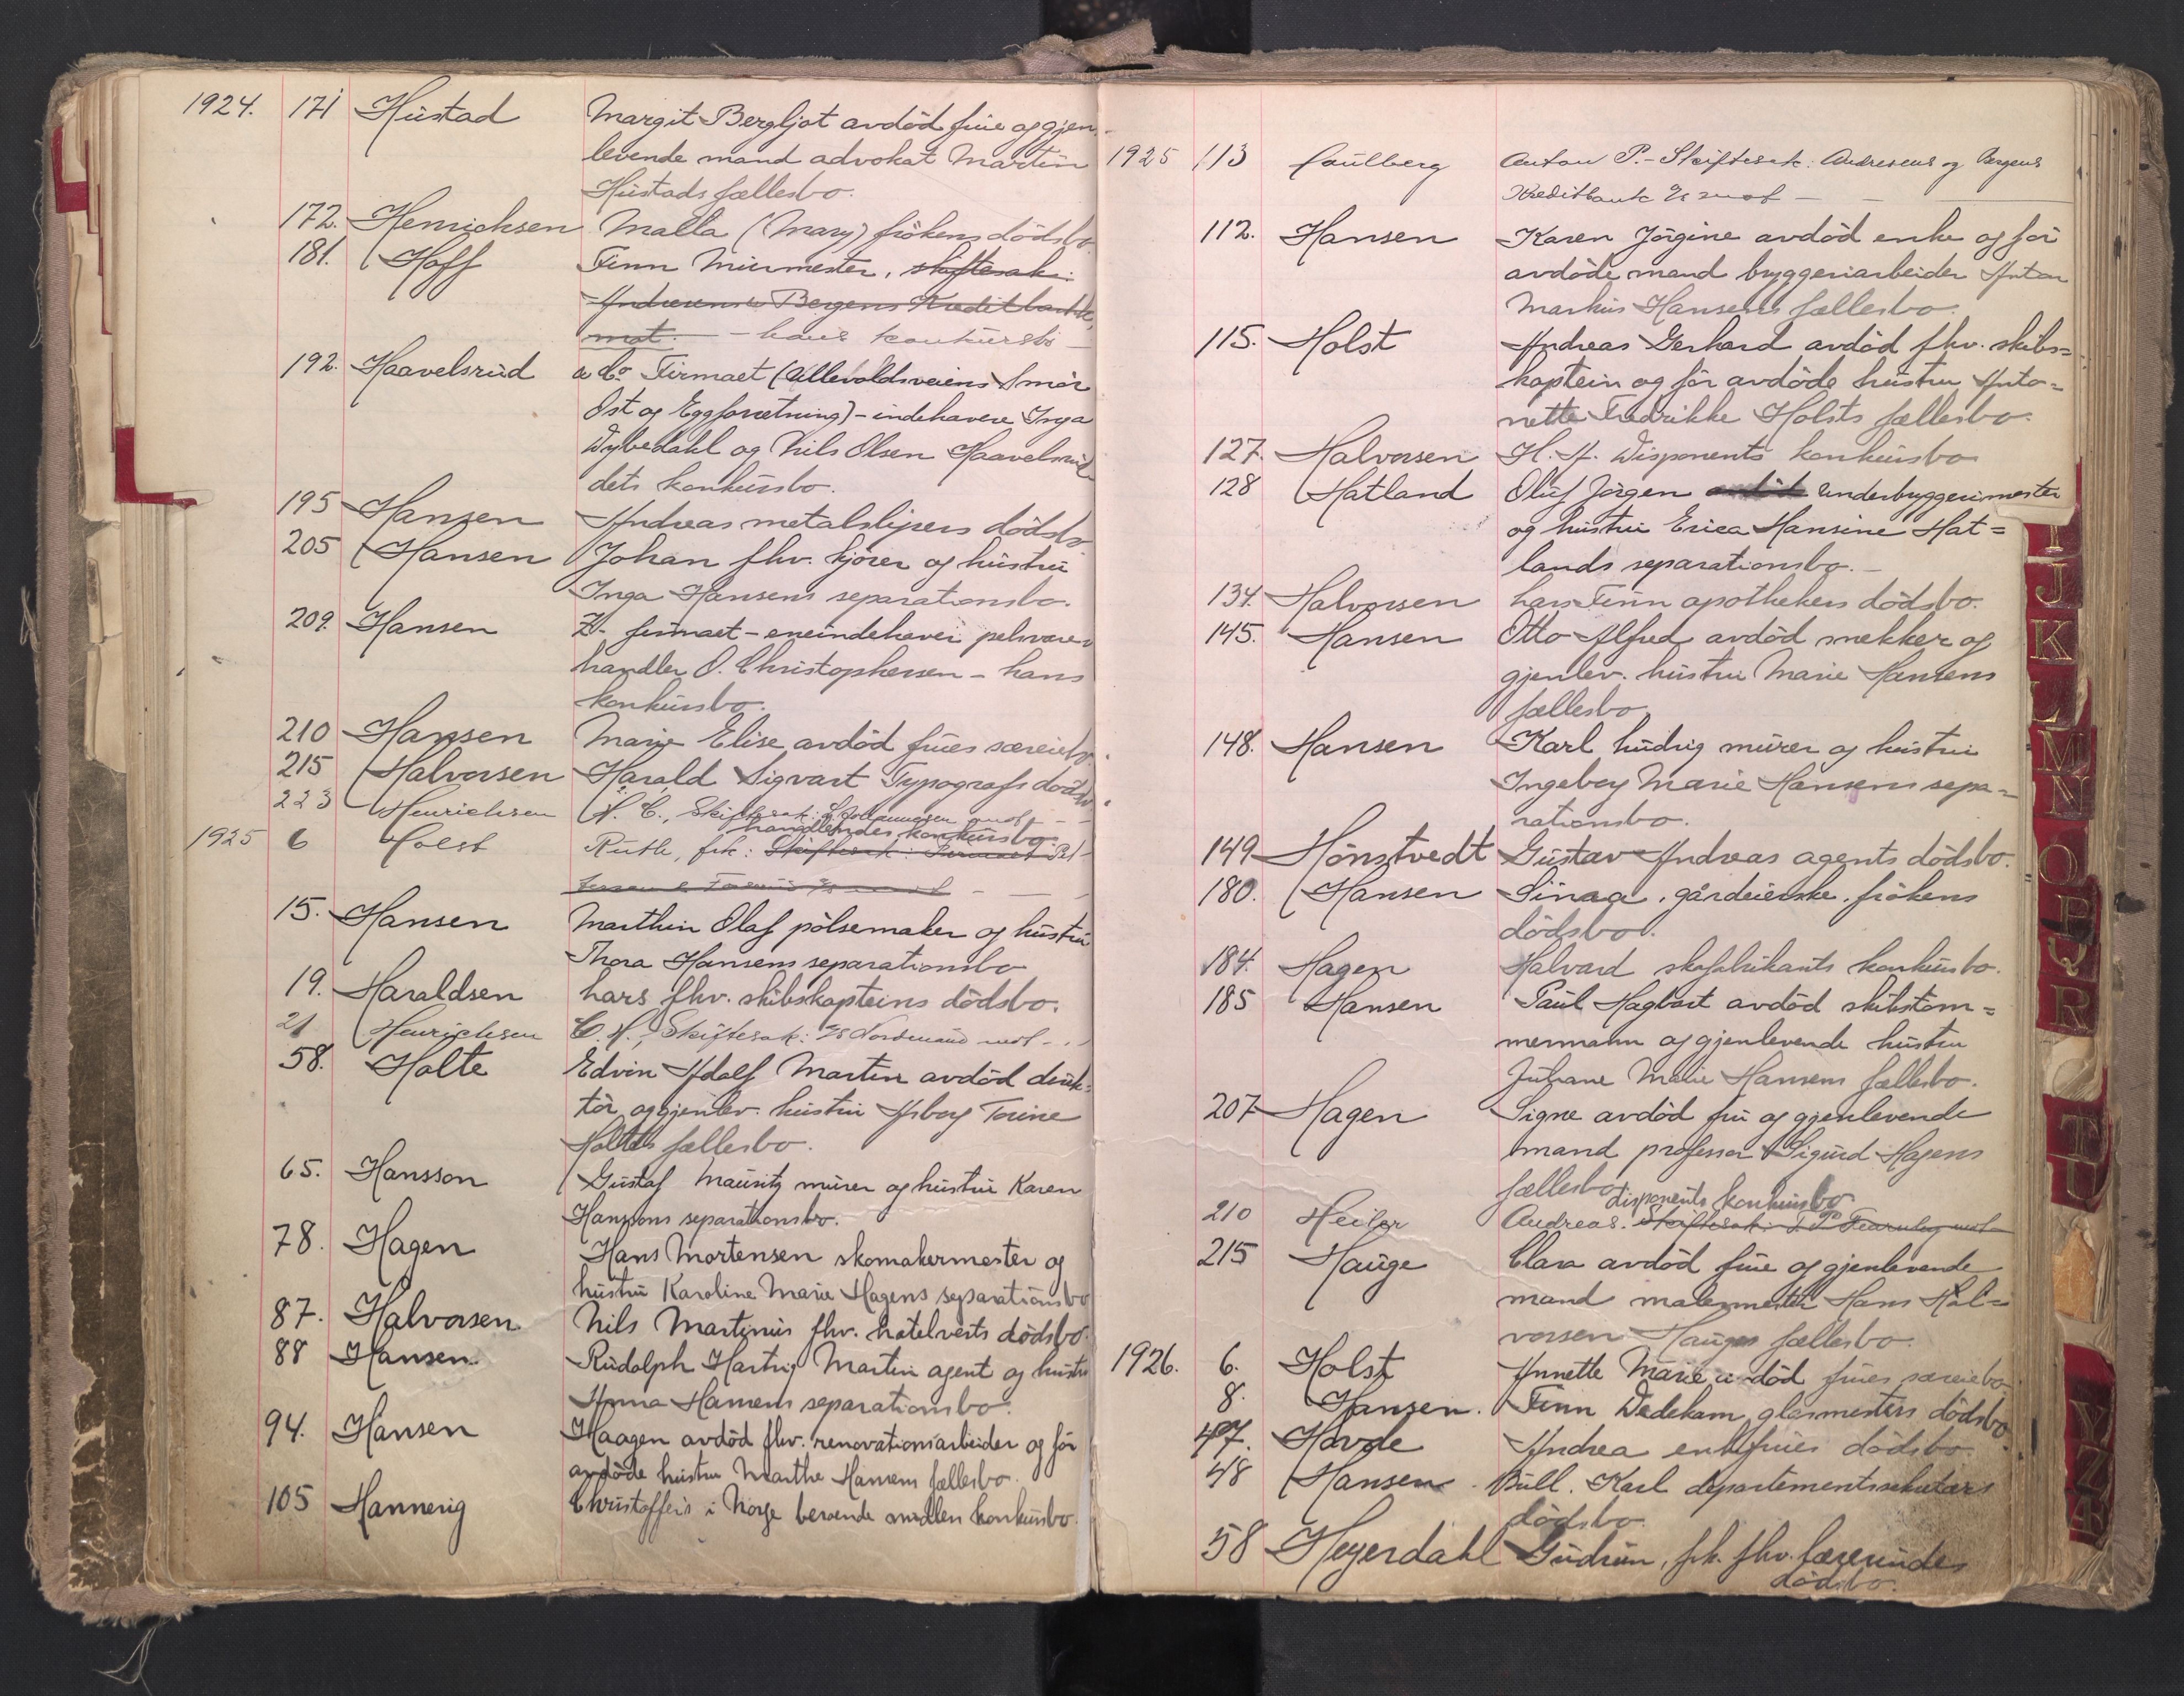 1924. 171 Hustad Margit Bergljot avdöd frue og gjen-
levende mand advokat Martin
Hustads fællesbo.
172. Henricksen Malla (Mary) frökens dödsbo
181. Hoff Finn Murmester, skiftesak:
Andresens & Bergens Kreditbank
mot. - hans konkursbo -
192. Haavelsrud & Co Firmaet (Ullevoldsveiens Smör
Ost og Eggforretning) - indehavere Inga
Dybedahl og Nils Olsen Haavelsrud
dets konkursbo.
195 Hansen Andreas metalslipers dödsbo
205 Hansen Johan fhv. kjörer og hustru
Inga Hansens separationsbo.
209. Hansen Z. firmaet - eneindehaver pelsvare-
handler O. Christophersen - hans
konkursbo.
210 Hansen Marie Elise avdöd frues særeiebo.
215 Halvorsen Harald Sigvart Typografs dödsbo
223 Henrichsen C., Skiftesak: mot - -
handlendes konkursbo
1925 6 Holst Ruth, frk: Skiftesak: Firmaet
mot - - -
15. Hansen Marthin Olaf pölsemaker og hustru
Thora Hansens separationsbo
19. Haraldsen Lars fhv. skibskapteins dödsbo.
21 Henrichsen C. H., Skiftesak: Nordmand mot - . -
58. Holte Edvin Adolf Martin avdöd direk-
tör og gjenlev. hustru Asborg Torine
Holtes fællesbo.
65. Hansson Gustaf Mauritz murer og hustru Karen
Hanssons separationsbo.
78. Hagen Hans Mortensen skomakermester og
hustru Karoline Marie Hagens separationsbo
87. Halvorsen Nils Martinus fhv. hotelverts dödsbo.
88 Hansen. Rudolph Hartvig Martin agent og hustru
Anna Hansens separationsbo.
94. Hansen Haagen avdöd fhv. renovationsarbeider og för
avdöde hustru Marthe Hansens fællesbo.
105 Hannerig Christoffer's i Norge beroende midlers konkursbo.
1925 113 Faulberg Anton P. - Skiftesak: Andresens og Bergens
Kreditbank A/s mot - -
112. Hansen Karen Jörgine avdöd enke og för
avdöde mand bryggeriarbeider Anton
Markus Hansens fællesbo.
115. Holst Andreas Gerhard avdöd fhv. skibs=
kaptein og för avdöde hustru Anto=
nette Fredrikke Holsts fællesbo.
127. Halvorsen H. A. Disponents konkursbo
128 Hatland Oluf Jörgen underbryggerimester
og hustru Erica Hansine Hat=
lands separationsbo. -
134. Halvorsen Lars Finn apothekers dödsbo.
145. Hansen Otto Alfred avdöd snekker og
gjenlev. hustru Marie Hansens
fællesbo
148. Hansen Karl Ludvig murer og hustru
Ingeborg Marie Hansens sepa=
rationsbo.
149 Hönstvedt Gustav Andreas agents dödsbo.
180. Hansen Sinaa, gårdeierske, frökens
dödsbo.
184. Hagen Halvard skofabrikants konkursbo.
185 Hansen Paul Hagbart avdöd skibstöm=
mermann og gjenlevende hustru
Juliane Marie Hansens fællesbo.
207 Hagen Signe avdöd fru og gjenlevende
mand professor Sigurd Hagens
fællesbo
disponents konkursbo
210 Heiler Andreas. Skiftesak: T. Fearnley mot
215 Hauge Clara avdöd frue og gjenlevende
mand malermester Hans Hal=
vorsen Hauges fællesbo.
1926. 6. Holst Annette Marie avdöd frues særeiebo
8. Hansen. Finn Dedekam glasmesters dödsbo.
47. Havde Andrea enkefrues dödsbo.
48 Hansen Bull. Karl departementssekretærs
dödsbo.
58 Heyerdahl Gudrun, frk. fhv. lærerindes
dödsbo.
I
J
K
L
M
N
O
P
Q
R
T
U
Y
Z